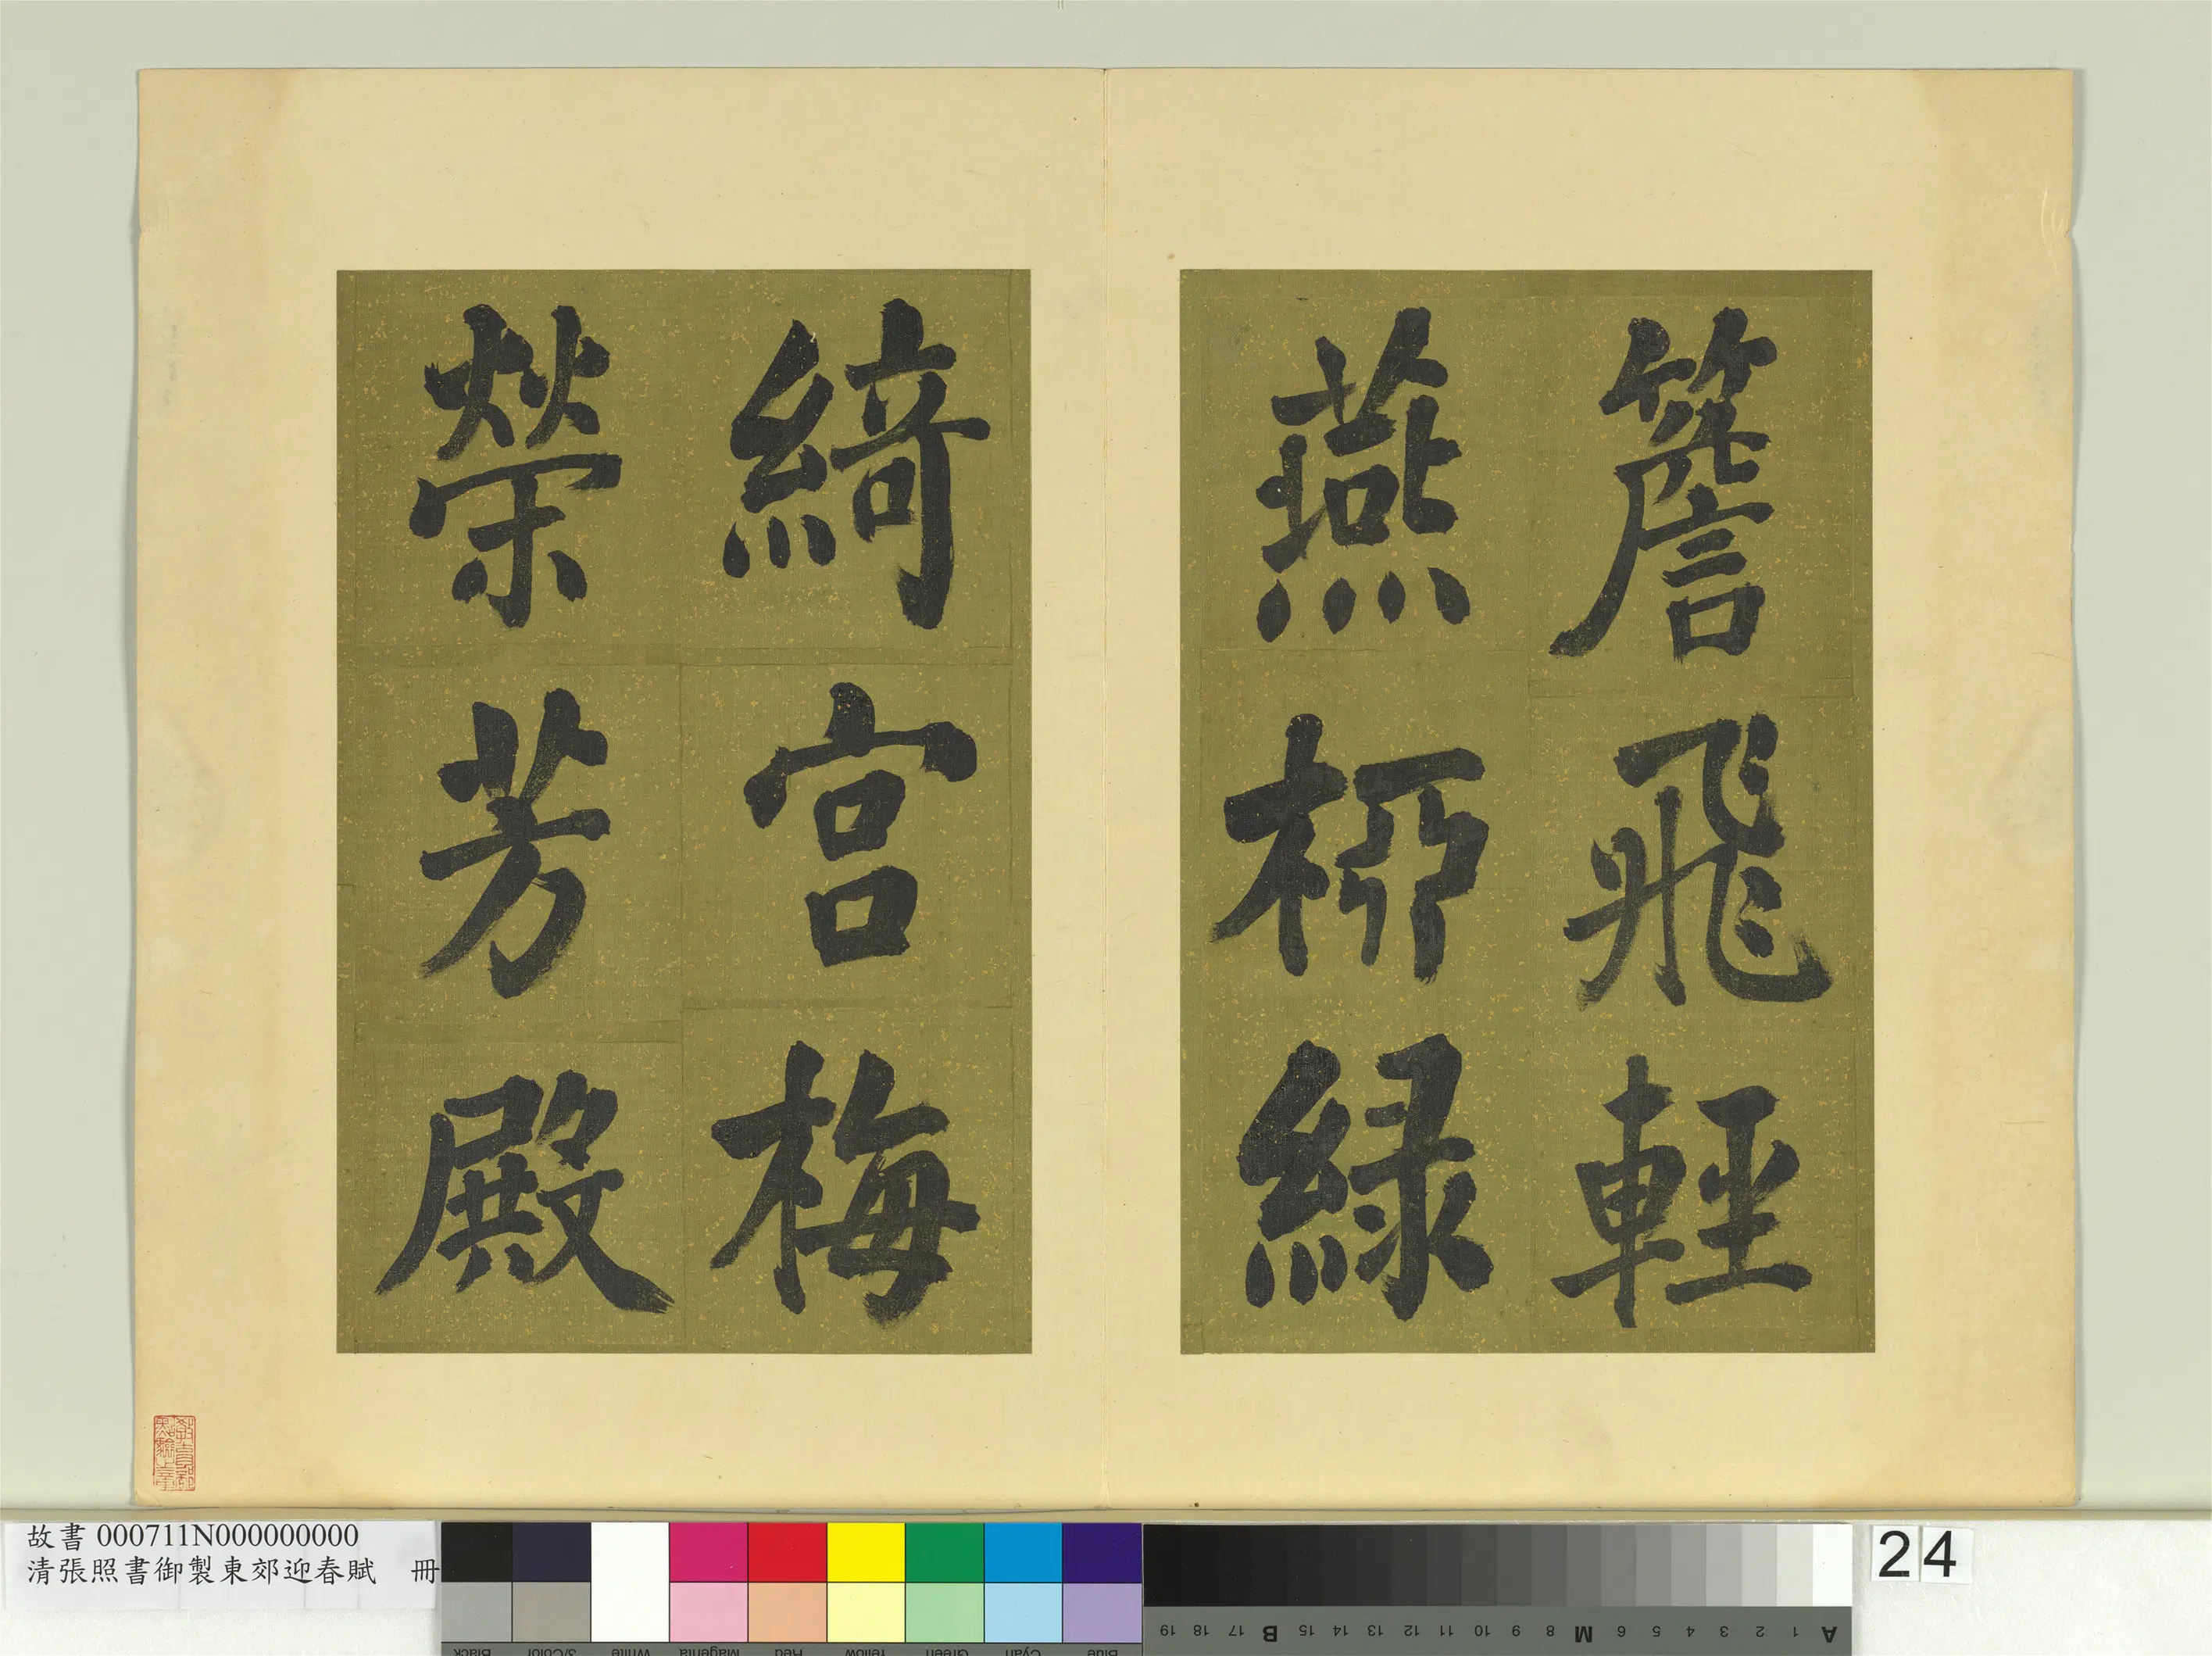 簷飛輕
燕柳綠
綺宮梅
榮芳殿
故書 000711N000000000
清張照書御製東郊迎春賦 冊
24
Black 3/Color White Magenta Red Yellow Green Cyan Blue
19 18 17 B 15 14 13 12 11 10 9 8 M 6 5 4 3 2 1 A